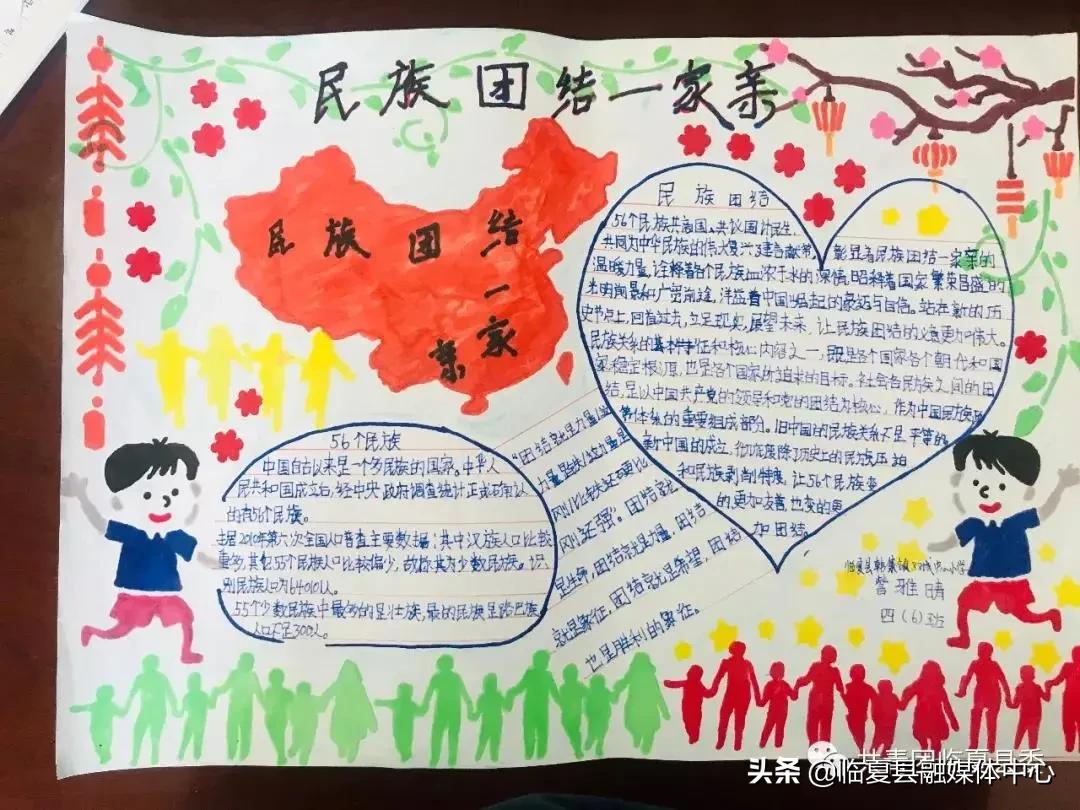 民族团结一家亲
民族团结
一家
亲
民族团结
56个民族共商国是、共议国计民生、
共同为中华民族的伟大复兴建言献策,
彰显着民族团结一家亲的
温暖力量,诠释着各个民族血浓于水的深情,昭释着国家繁荣昌盛的
光明前景和广阔前途,洋溢着中国崛起的豪迈与自信。站在新的历
史节点上,回首过去,立足现实,展望未来,让民族团结的意义更加伟大。
民族关系的基本特征和核心内容之一,既是各个国家各个朝代和国
家稳定根源,也是各个国家所追求的目标。社会各民族之间的团
结,是以中国共产党的领导和党的团结为核心,作为中国民族政
体系的重要组成部分。旧中国的民族关系不是平等的,
新中国的成立,彻底废除了历史上的民族压迫
和民族剥削制度,让56个民族变
的更加友善,也变的更
加团结。
56个民族
中国自古以来是一个多民族的国家。中华人
民共和国成立后,经中央政府调查统计正式确认
的有56个民族。
主居2010年第六次全国人口普查主要数据:其中汉族人口比较
重多,其它55个民族人口比较偏少,故称其为少数民族。识
别民族人口为640101人。
55个少数民族中最多的是壮族,最的民族是珞巴族
人口不足300人。
"团结就是力量
力量是铁
刚比铁还硬比
刚还强"。团结就
是生命,团结就是力量,团结
就是象征,团结就是希望,团结
也是胜利的象征。
临夏县韩集镇双城中心小学
雅晴
四(6)班
共青团临夏县委
头条@临夏县融媒体中心